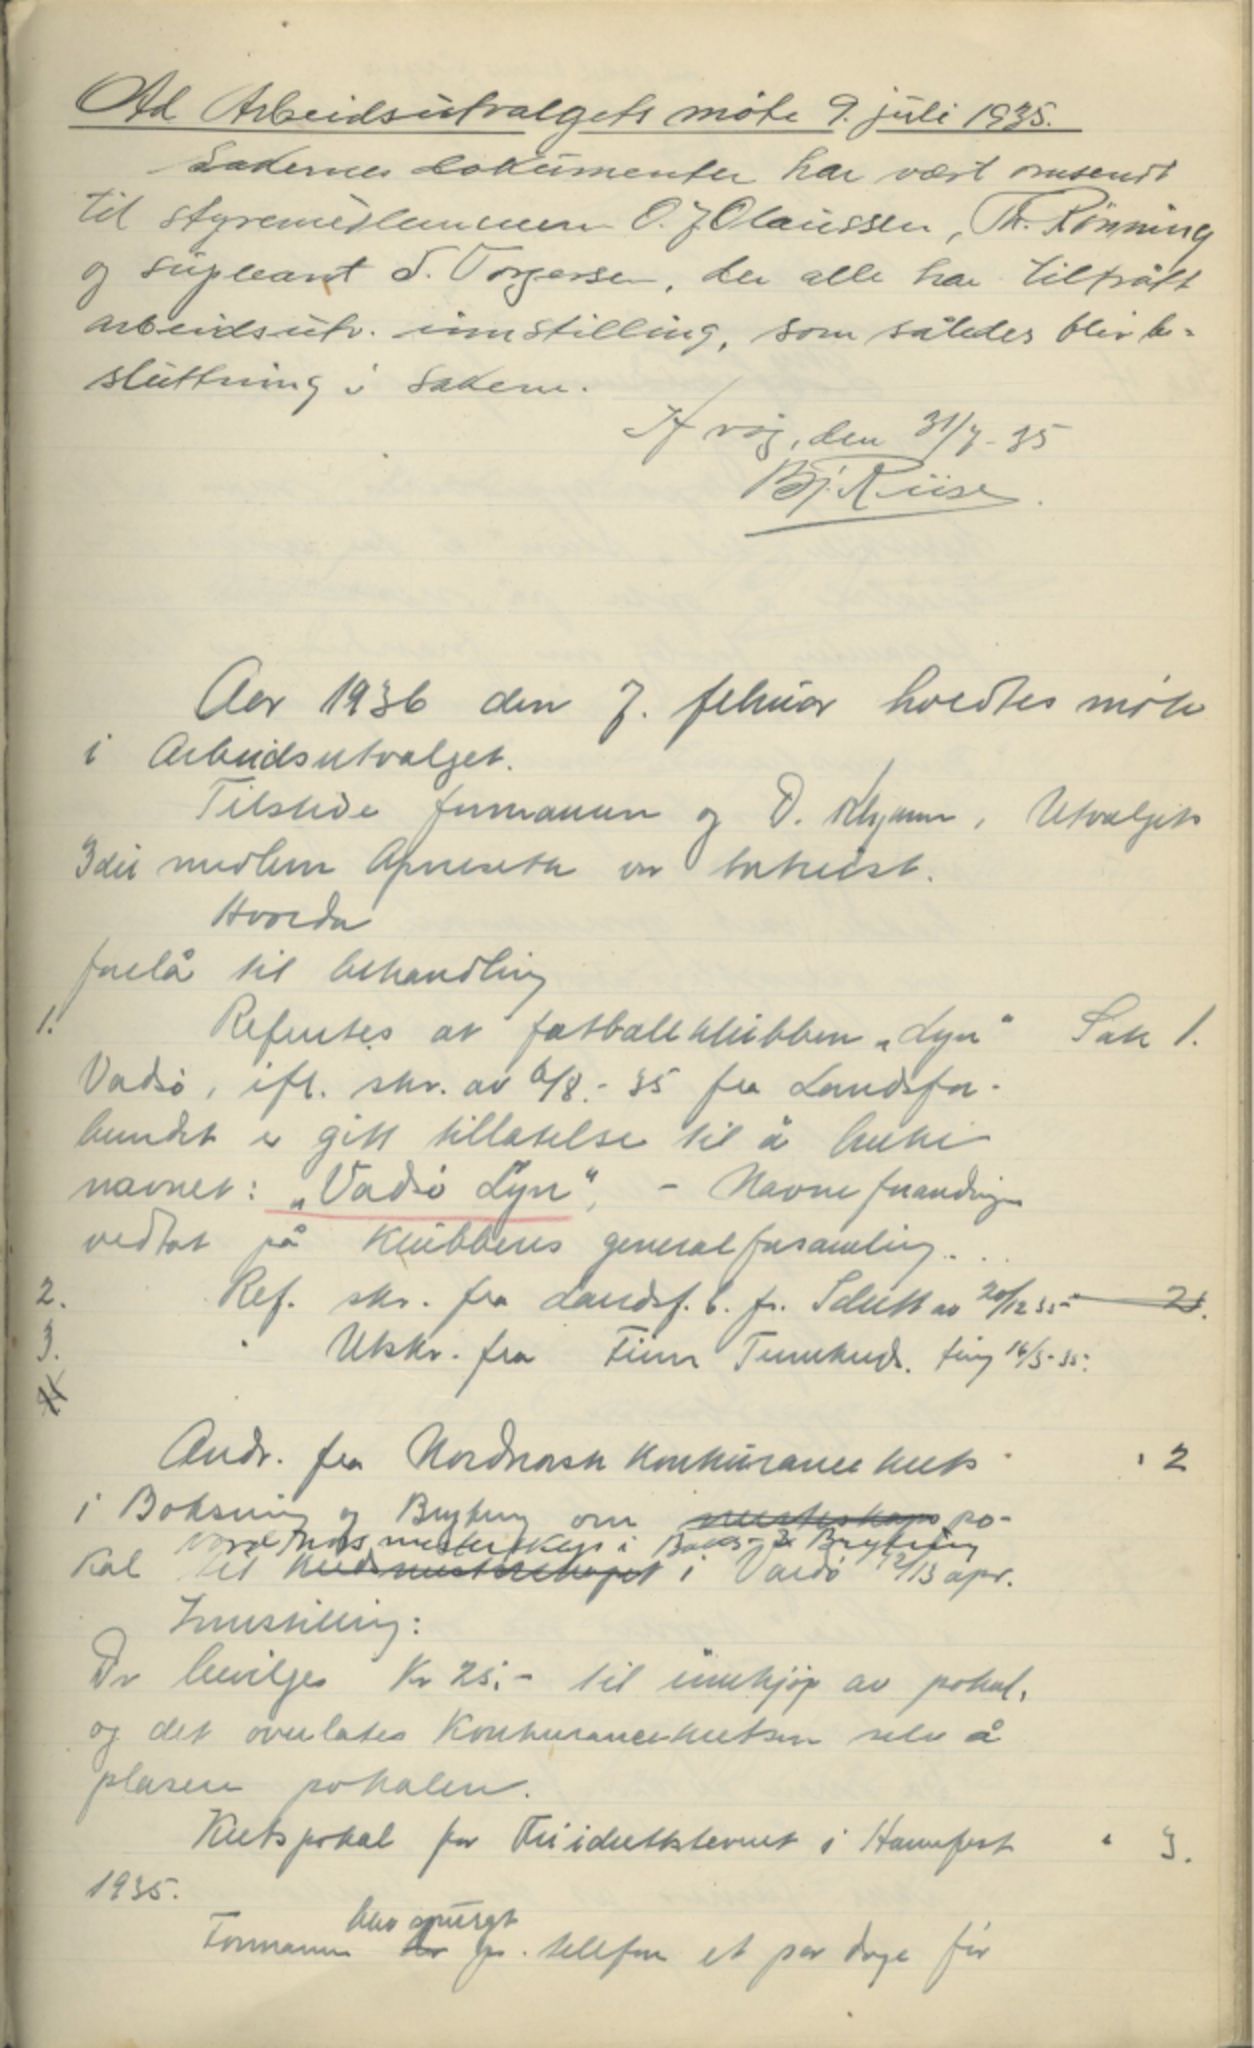 Ad Arbeidsutvalgets möte 9. juli 1935.
Sakernes dokumenter har vært omsendt
til styremedlemmene O. J Olaussen, Th. Rönning
og supleant S. Torgersen, der alle har tiltrått
arbeidsutv. innstilling, som således blir be-
sluttning i sakene.
H våg, den 31/7-35
Bj. Riise
Aar 1936 den 7. februar holdtes möte
i Arbeidsutvalget.
Tilstede formannen og D. Utvalgets
3die medlem Apneseth var bortreist.
Hvorda
forelå til behandling
1. Refertes at fotballklubben „Lyn" Sak 1.
Vadsö, ifl. skr. av 6/8.-35 fra Landsfor-
bundet er gitt tillatelse til å bruke
navnet: „Vadsö Lyn", - Navneforandringen
vedtat på klubbens generalforsamling.
2. Ref. skr. fra Landsf. b. fr. Idrett av 20/12 35 2.
3. " Utskr. fra Finn Tinnkreds. ting 16/5-35.
4
Andr. fra Nordnorsk Konkurancekrets " 2
i Boksning og Bryting om mesterskaps po-
Nord Nors mesterskap i Boks- & Bryting
kal til kredsmesterskapet i Vardö 12/13 apr.
Innstilling:
Der bevilges Kr 25,- til innkjöp av pokal,
og det overlates Konkurancekretsen selv å
plasere pokalen.
Kretspokal for Friidrettstevnet i Hammerfest " 3.
1935.
blev spurgt
Formannen pr. telefon et par dage för